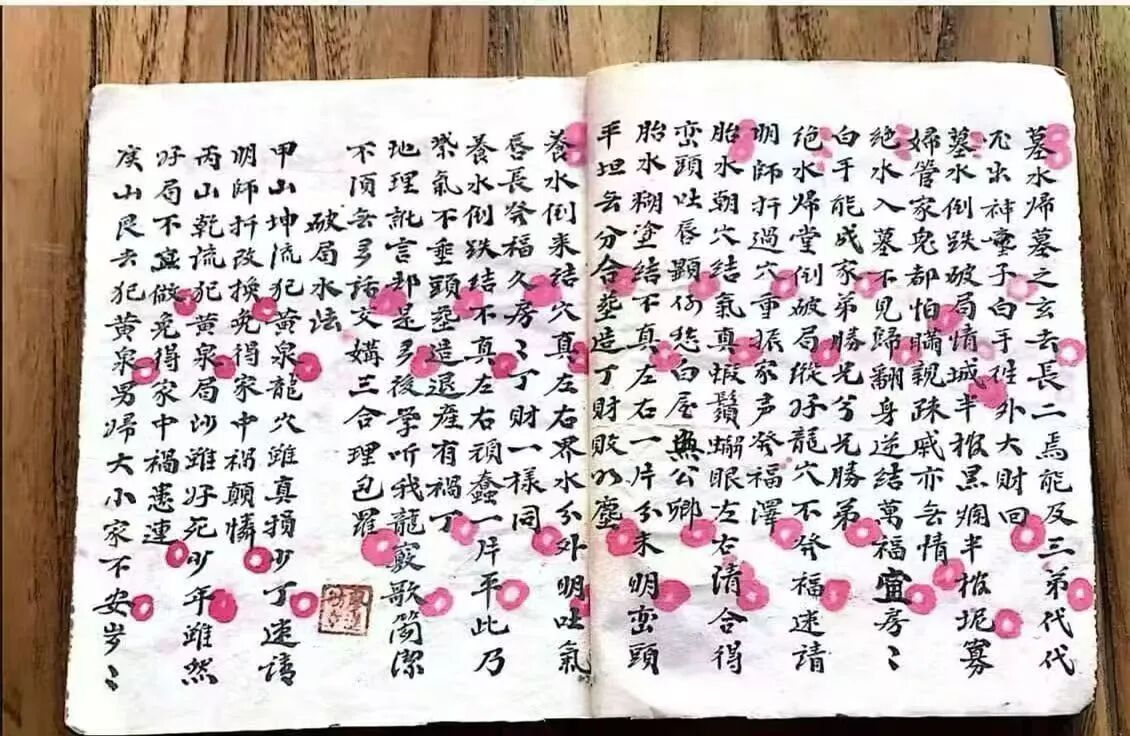 墓水歸墓之玄去長二焉能及三弟代代
不出神童子白手性外大財回
墓水倒跌破局情城半掀黑爛半掀坭寡
婦管家鬼都怕瞞親疎戚亦無情
絶水入墓不見歸翻身逆結萬福宜房〻
白手能成家弟勝兄兮兄勝弟
絶水歸堂倒破局縱好龍穴不發福速请
明師扦過穴重振家声發福澤
胎水朝穴結氣真蝦鬚蠏眼左右清合得
巒頭吐唇顕何愁白屋無公卿
胎水糊塗結不真左右一片分未明巒頭
平坦無分合塟造丁財敗如塵
養水倒来結穴真左右界水分外明吐氣
唇長發福久房〻丁財一樣同
養水倒跌結不真左右頑蠢一片平此乃
氣不垂頭塟造退產有禍丁
地理訛言却是多後学听我龍竅歌簡潔
不須無多話交媾三合理包羅
破局水法
甲山坤流犯黄泉龍穴雖真損少丁速請
明師扦改換免得家中禍顛憐
丙山乾流犯黄泉局沙雖好死少年雖然
好局不宜做免得家中禍患連
庚山艮去犯黄泉男婦大小家不安岁〻